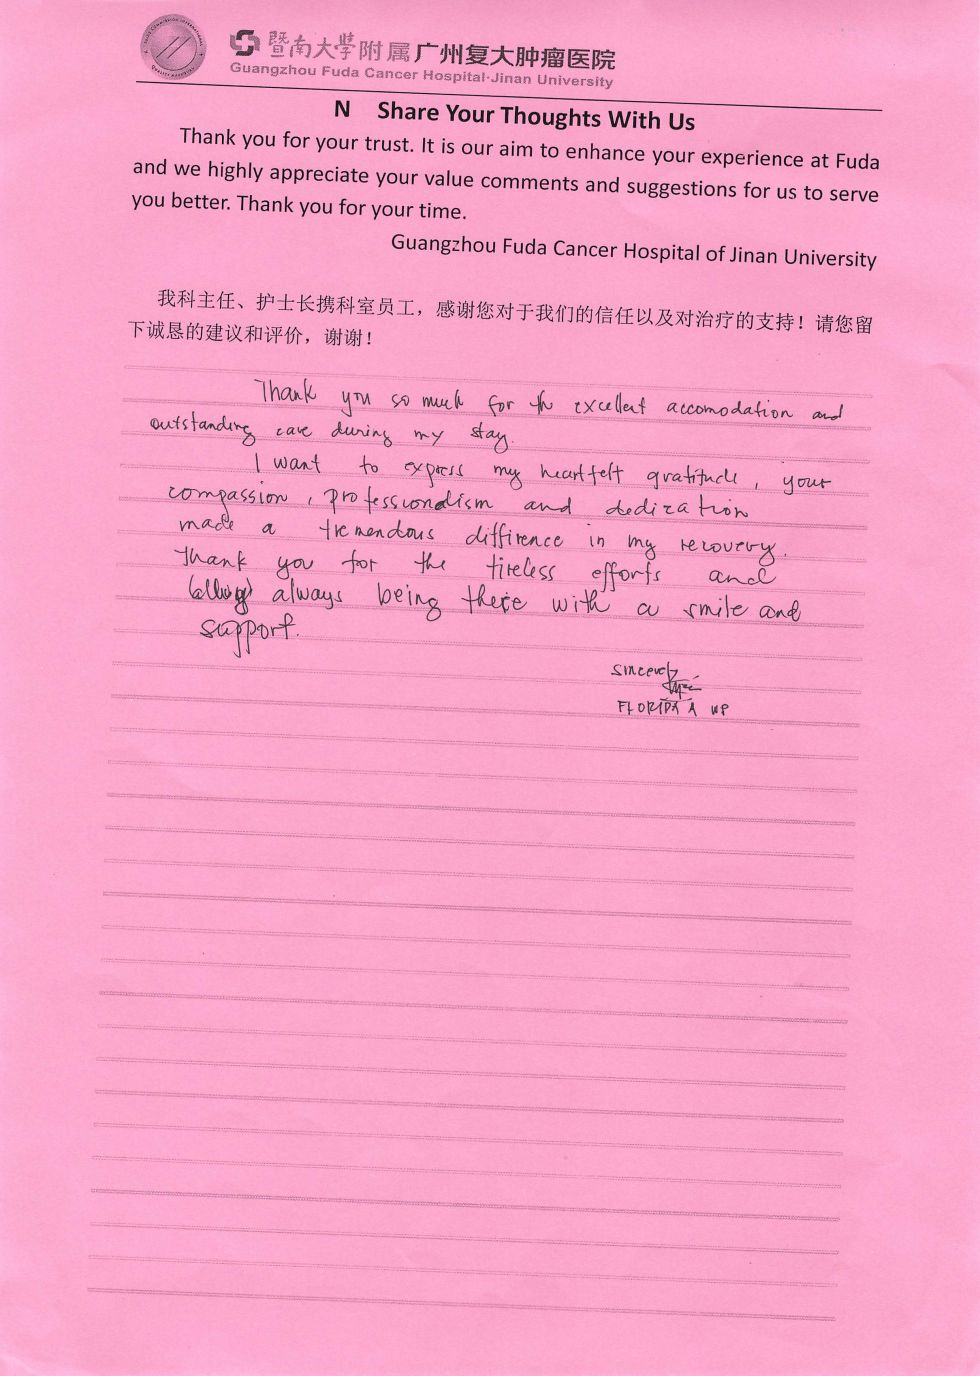 暨南大学附属广州复大肿瘤医院
Guangzhou Fuda Cancer Hospital·Jinan University
N Share Your Thoughts With Us
Thank you for your trust. It is our aim to enhance your experience at Fuda
and we highly appreciate your value comments and suggestions for us to serve
you better. Thank you for your time.
Guangzhou Fuda Cancer Hospital of Jinan University
我科主任、护士长携科室员工，感谢您对于我们的信任以及对治疗的支持！请您留
下诚恳的建议和评价，谢谢！
Thank you so much for the excellent accomodation and
outstanding care during my stay.
I want to express my heartfelt gratitude, your
compassion, professionalism and dedication
made a tremendous diffirence in my recovery.
Thank you for the tireless efforts and
always being there with a smile and
support.
Sincerely
FLORIDA A